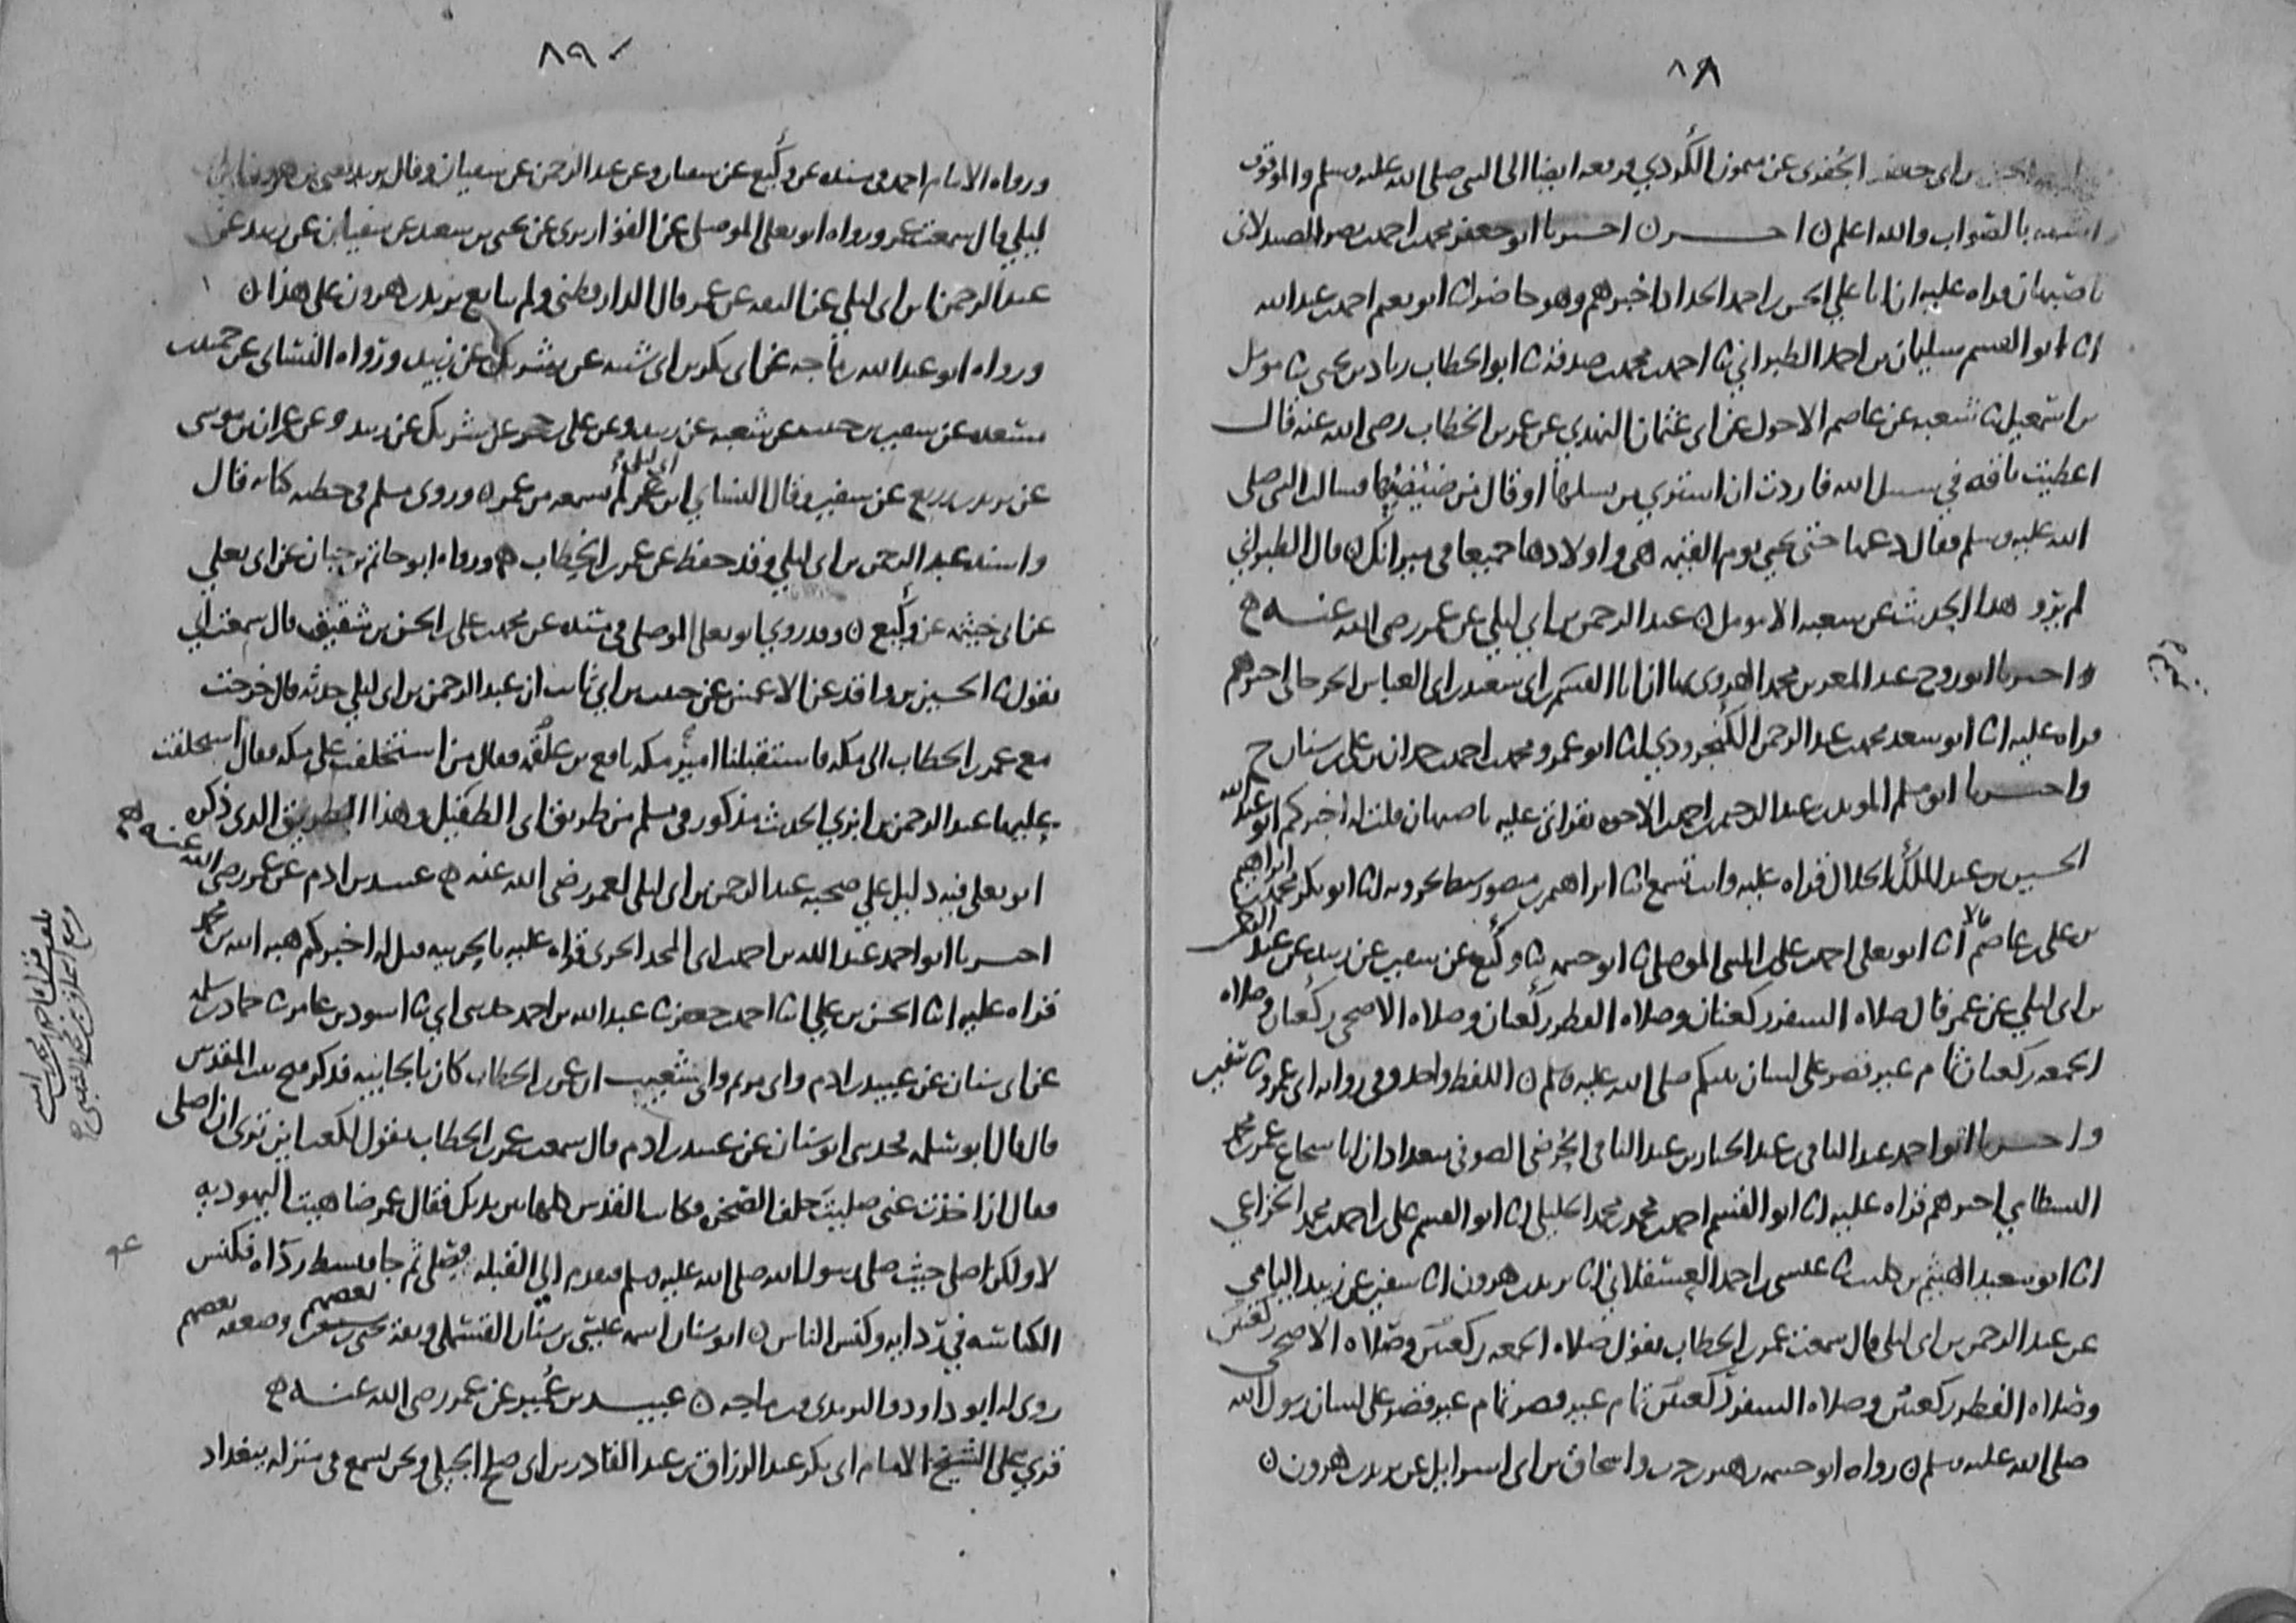 ٨٨
الحسن بن ابي جعفر الجفري عن ميمون الكردي ورفعه ايضا الى النبي صلى الله عليه وسلم والموقوف
اشبه بالصواب والله اعلم ن اخر ن اخبرنا ابو جعفر محمد بن احمد بن نصر الصيدلاني
باصبهان قراه عليه ان ابا علي الحسن بن احمد الحداد اخبرهم وهو حاضر انا ابو نعيم احمد بن عبدالله
انا ابو القسم سليمان بن احمد الطبراني ثنا احمد بن محمد بن صدقه ثنا ابو الخطاب زياد بن يحيى ثنا مومل
بن اسمعيل ثنا شعبه عن عاصم الاحول عن ابي عثمان النهدي عن عمر بن الخطاب رضي الله عنه قال
اعطيت ناقه في سبيل الله فاردت ان اشتري من نسلها او قال من ضئضئها فسالت النبي صلى
الله عليه وسلم فقال دعها حتى تجي يوم القيمه هي واولادها جميعا في ميزانك ن قال الطبراني
لم يرو هذا الحديث عن شعبه الا مومل ن عبد الرحمن بن ابي ليلي عن عمر رضي الله عنه ه
واخبرنا ابو روح عبد المعز بن محمد الهروي بها ان ابا القسم بن ابي سعد بن ابي العباس الجرجاني اخبرهم
قراه عليه انا ابو سعد محمد بن عبد الرحمن الكنجرودي انا ابو عمرو محمد بن احمد بن حمدان بن علي بن سنان ح
واخبرنا ابو مسلم المويد بن عبد الرحيم بن احمد بن الاخوه بقراتي عليه باصبهان قلت له اخبركم ابو عبد الله
الحسين بن عبد الملك الخلال قراه عليه وانت تسمع انا ابراهيم بن منصور سبط بحرويه انا ابو بكر محمد بن ابراهيم
بن علي بن عاصم قالا انا ابو يعلى احمد بن علي بن المثنى الموصلي ثنا ابو خيثمه ثنا وكيع عن سفين عن زبيد عن عبد الرحمن
بن ابي ليلي عن عمر قال صلاه السفر ركعتان وصلاه الفطر ركعتان وصلاه الاضحى ركعتان وصلاه
الجمعه ركعتان تمام غير قصر على لسان نبيكم صلى الله عليه وسلم ن اللفظ واحد وفي روايه ابي عمرو ثنا سفين
واخبرنا ابو احمد عبد الباقي بن عبد الجبار بن عبد الباقي الحرضي الصوفي ببغداد ان ابا شجاع عمر بن محمد
البسطامي اخبرهم قراه عليه انا ابو القسم احمد بن محمد بن محمد الخليلي انا ابو القسم علي بن احمد بن محمد الخزاعي
انا ابو سعيد الهيثم بن كليب ثنا عيسى بن احمد العسقلاني انا يزيد بن هرون انا سفين عن زبيد اليامي
عن عبد الرحمن بن ابي ليلي قال سمعت عمر بن الخطاب يقول صلاه الجمعه ركعتين وصلاه الاضحى ركعتين
وصلاه الفطر ركعتين وصلاه السفر ركعتين تمام غير قصر تمام غير قصر على لسان رسول الله
صلى الله عليه وسلم ن رواه ابو خيثمه زهير بن حرب واسحاق بن ابي اسرايل عن يزيد بن هرون ن
٨٩
ورواه الامام احمد في مسنده عن وكيع عن سفيان وعن عبد الرحمن عن سفيان وقال يزيد يعني بن هرون ابن ابي
ليلي قال سمعت عمر ورواه ابو يعلى الموصلي عن القواريري عن يحيى بن سعيد عن سفيان عن زبيد عن
عبد الرحمن بن ابي ليلي عن الثقه عن عمر قال الدارقطني ولم يتابع يزيد بن هرون على هذا ن
ورواه ابو عبد الله بن ماجه عن ابي بكر بن ابي شيبه عن شريك عن زبيد ورواه النسائي عن حميد بن
مسعده عن سفين بن حبيب عن شعبه عن زبيد وعن علي بن حجر عن شريك عن زبيد وعن عمران بن موسى
عن يزيد بن زريع عن سفين وقال النسائي ابن ابي ليلى لم يسمعه من عمر ن وروى مسلم في خطبه كتابه قال
واسند عبد الرحمن بن ابي ليلي وقد حفظ عن عمر بن الخطاب ه ورواه ابو حاتم بن حبان عن ابي يعلي
عن ابي خيثمه عن وكيع ن وقد روي ابو يعلى الموصلي في مسنده عن محمد بن علي بن الحسن بن شقيق قال سمعت ابي
يقول ثنا الحسين بن واقد عن الاعمش عن حبيب بن ابي ثابت ان عبد الرحمن بن ابي ليلي حدثه قال خرجت
مع عمر بن الخطاب الى مكه فاستقبلنا امير مكه نافع بن علقمه فقال من استخلفت على مكه فقال استخلفت
عليها عبد الرحمن بن ابزي الحديث مذكور في مسلم من طريق ابي الطفيل وهذا الطريق الذي ذكره
ابو يعلى فيه دليل على صحبه عبد الرحمن بن ابي ليلى لعمر رضي الله عنه ه عبيد بن ادم عن عمر رضي الله عنه ه
اخبرنا ابو احمد عبد الله بن احمد بن ابي المجد الحربي قراه عليه بالحربيه قيل له اخبركم هبه الله بن محمد
قراه عليه انا الحسن بن علي انا احمد بن جعفر ثنا عبد الله بن احمد حدثني ابي ثنا اسود بن عامر ثنا حماد بن سلمه
عن ابي سنان عن عبيد بن ادم وابي مريم وابي شعيب ان عمر بن الخطاب كان بالجابيه فذكر فتح بيت المقدس
قال قال ابو سلمه فحدثني ابو سنان عن عبيد بن ادم قال سمعت عمر بن الخطاب يقول لكعب اين ترى ان اصلي
فقال ان اخذت عني صليت خلف الصخره وكانت القدس كلها بين يديك فقال عمر ضاهيت اليهوديه
لا ولكن اصلي حيث صلى رسول الله صلى الله عليه وسلم فتقدم الى القبله فصلى ثم جا فبسط رداه فكنس
الكناسه في ردايه وكنس الناس ن ابو سنان اسمه عيسى بن سنان القسملي وثقه يحيى بن معين بعضهم وضعفه بعضهم
روى له ابو داود والترمذي وبن ماجه ن عبيد بن عمير عن عمر رضي الله عنه ه
قري على الشيخ الامام ابي بكر عبد الرزاق بن عبد القادر بن ابي صلح الجيلي ونحن نسمع في منزله ببغداد